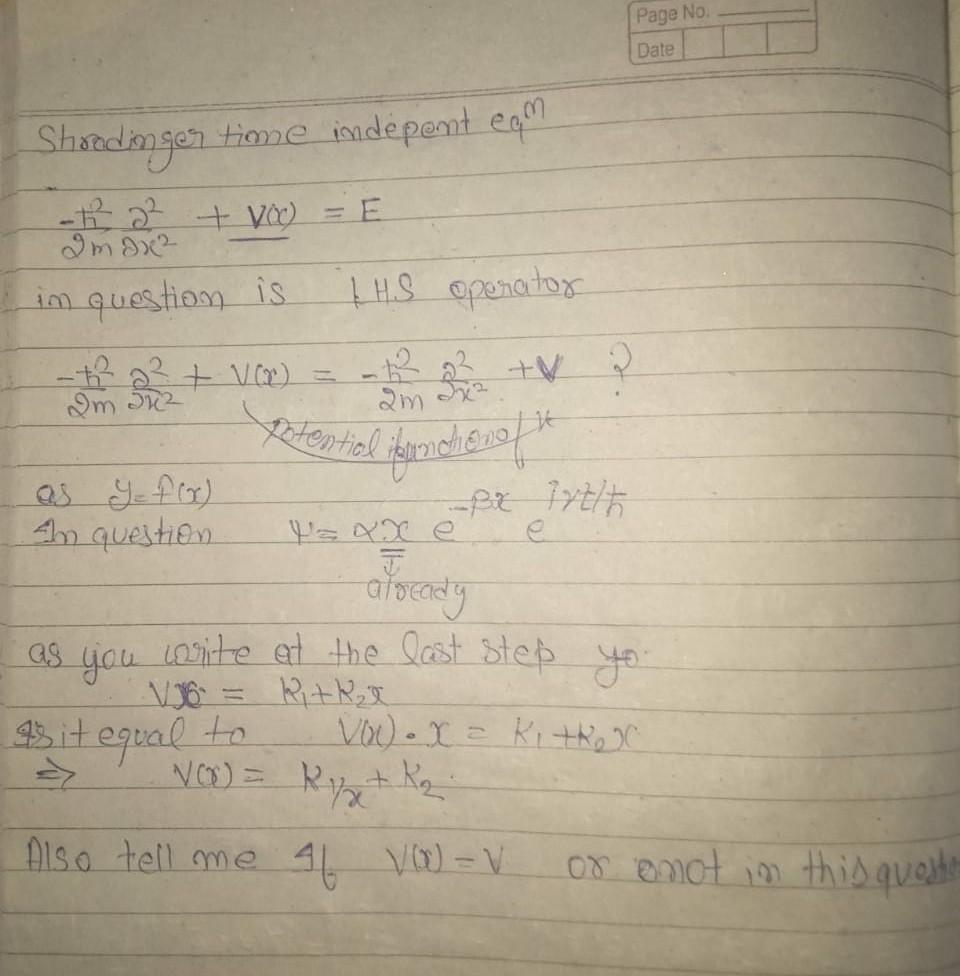 Page No.
Date
Shrodinger time indepent eqn
-ħ²/2m ∂²/∂x² + V(x) = E
in question is LHS operator
-ħ²/2m ∂²/∂x² + V(x) = -ħ²/2m ∂²/∂x² + V ?
Potential function of x
as y=f(x)
In question ψ = αx e^-βx e^iγt/ħ
already
as you write at the last step yo
Vx = K₁+K₂x
Is it equal to V(x)·x = K₁+K₂x
⇒ V(x) = K₁/x + K₂
Also tell me If V(x) = V or not in this